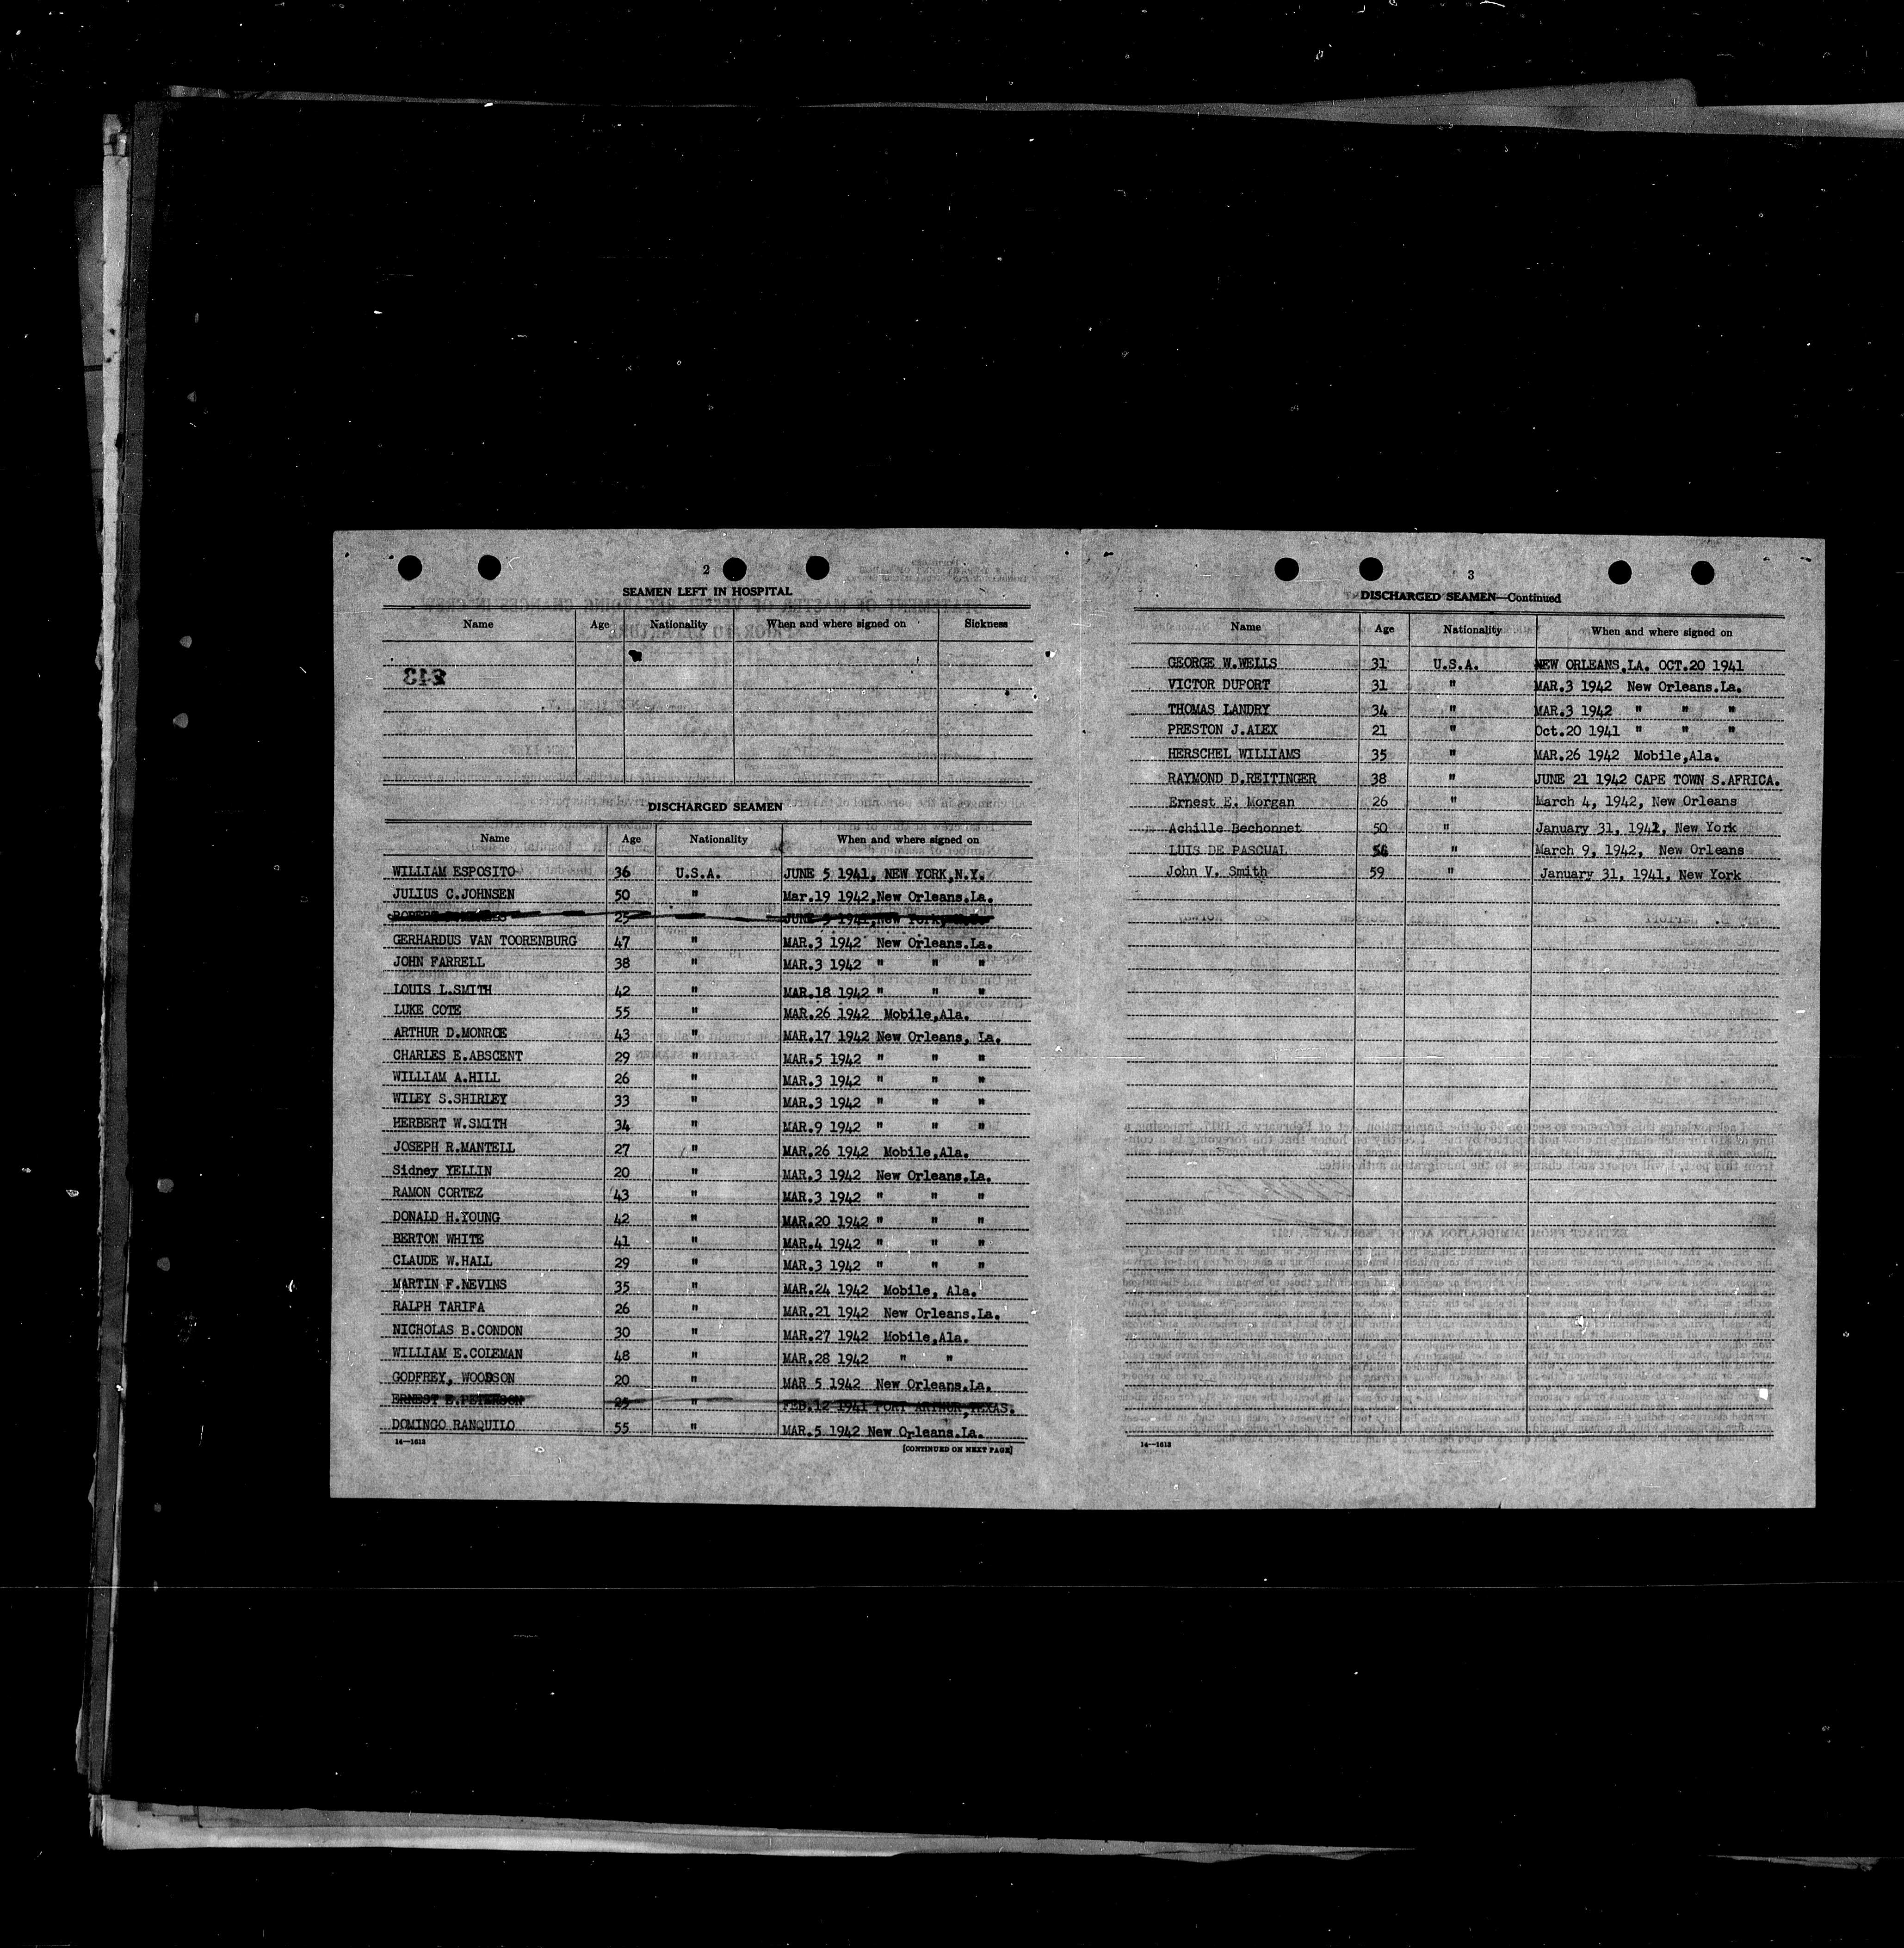 2
SEAMEN LEFT IN HOSPITAL
Name Age Nationality When and where signed on Sickness
DISCHARGED SEAMEN
Name Age Nationality When and where signed on
WILLIAM ESPOSITO 36 U.S.A. JUNE 5 1941, NEW YORK,N.Y.
JULIUS C.JOHNSEN 50 " Mar.19 1942,New Orleans.La.
25 " JUNE 5 1941,New York
GERHARDUS VAN TOORENBURG 47 " MAR.3 1942 New Orleans.La.
JOHN FARRELL 38 " MAR.3 1942 " " "
LOUIS L.SMITH 42 " MAR.18 1942 " " "
LUKE COTE 55 " MAR.26 1942 Mobile,Ala.
ARTHUR D.MONROE 43 " MAR.17 1942 New Orleans, La.
CHARLES E.ABSCENT 29 " MAR.5 1942 " " "
WILLIAM A.HILL 26 " MAR.3 1942 " " "
WILEY S.SHIRLEY 33 " MAR.3 1942 " " "
HERBERT W.SMITH 34 " MAR.9 1942 " " "
JOSEPH R.MANTELL 27 " MAR.26 1942 Mobile,Ala.
Sidney YELLIN 20 " MAR.3 1942 New Orleans.La.
RAMON CORTEZ 43 " MAR.3 1942 " " "
DONALD H.YOUNG 42 " MAR.20 1942 " " "
BERTON WHITE 41 " MAR.4 1942 " " "
CLAUDE W.HALL 29 " MAR.3 1942 " " "
MARTIN F.NEVINS 35 " MAR.24 1942 Mobile, Ala.
RALPH TARIFA 26 " MAR.21 1942 New Orleans.La.
NICHOLAS B.CONDON 30 " MAR.27 1942 Mobile,Ala.
WILLIAM E.COLEMAN 48 " MAR.28 1942 " "
GODFREY, WOODSON 20 " MAR 5 1942 New Orleans.La.
ERNEST E.PETERSON 25 " FEB.12 1941 PORT ARTHUR,TEXAS.
DOMINGO RANQUILO 55 " MAR.5 1942 New Orleans.La.
14—1613 [CONTINUED ON NEXT PAGE]
3
DISCHARGED SEAMEN—Continued
Name Age Nationality When and where signed on
GEORGE W.WELLS 31 U.S.A. NEW ORLEANS,LA. OCT.20 1941
VICTOR DUPORT 31 " MAR.3 1942 New Orleans.La.
THOMAS LANDRY 34 " MAR.3 1942 " " "
PRESTON J.ALEX 21 " Oct.20 1941 " " "
HERSCHEL WILLIAMS 35 " MAR.26 1942 Mobile,Ala.
RAYMOND D.REITINGER 38 " JUNE 21 1942 CAPE TOWN S.AFRICA.
Ernest E. Morgan 26 " March 4, 1942, New Orleans
Achille Bechonnet 50 " January 31, 1942, New York
LUIS DE PASCUAL 56 " March 9, 1942, New Orleans
John V. Smith 59 " January 31, 1941, New York
14—1613